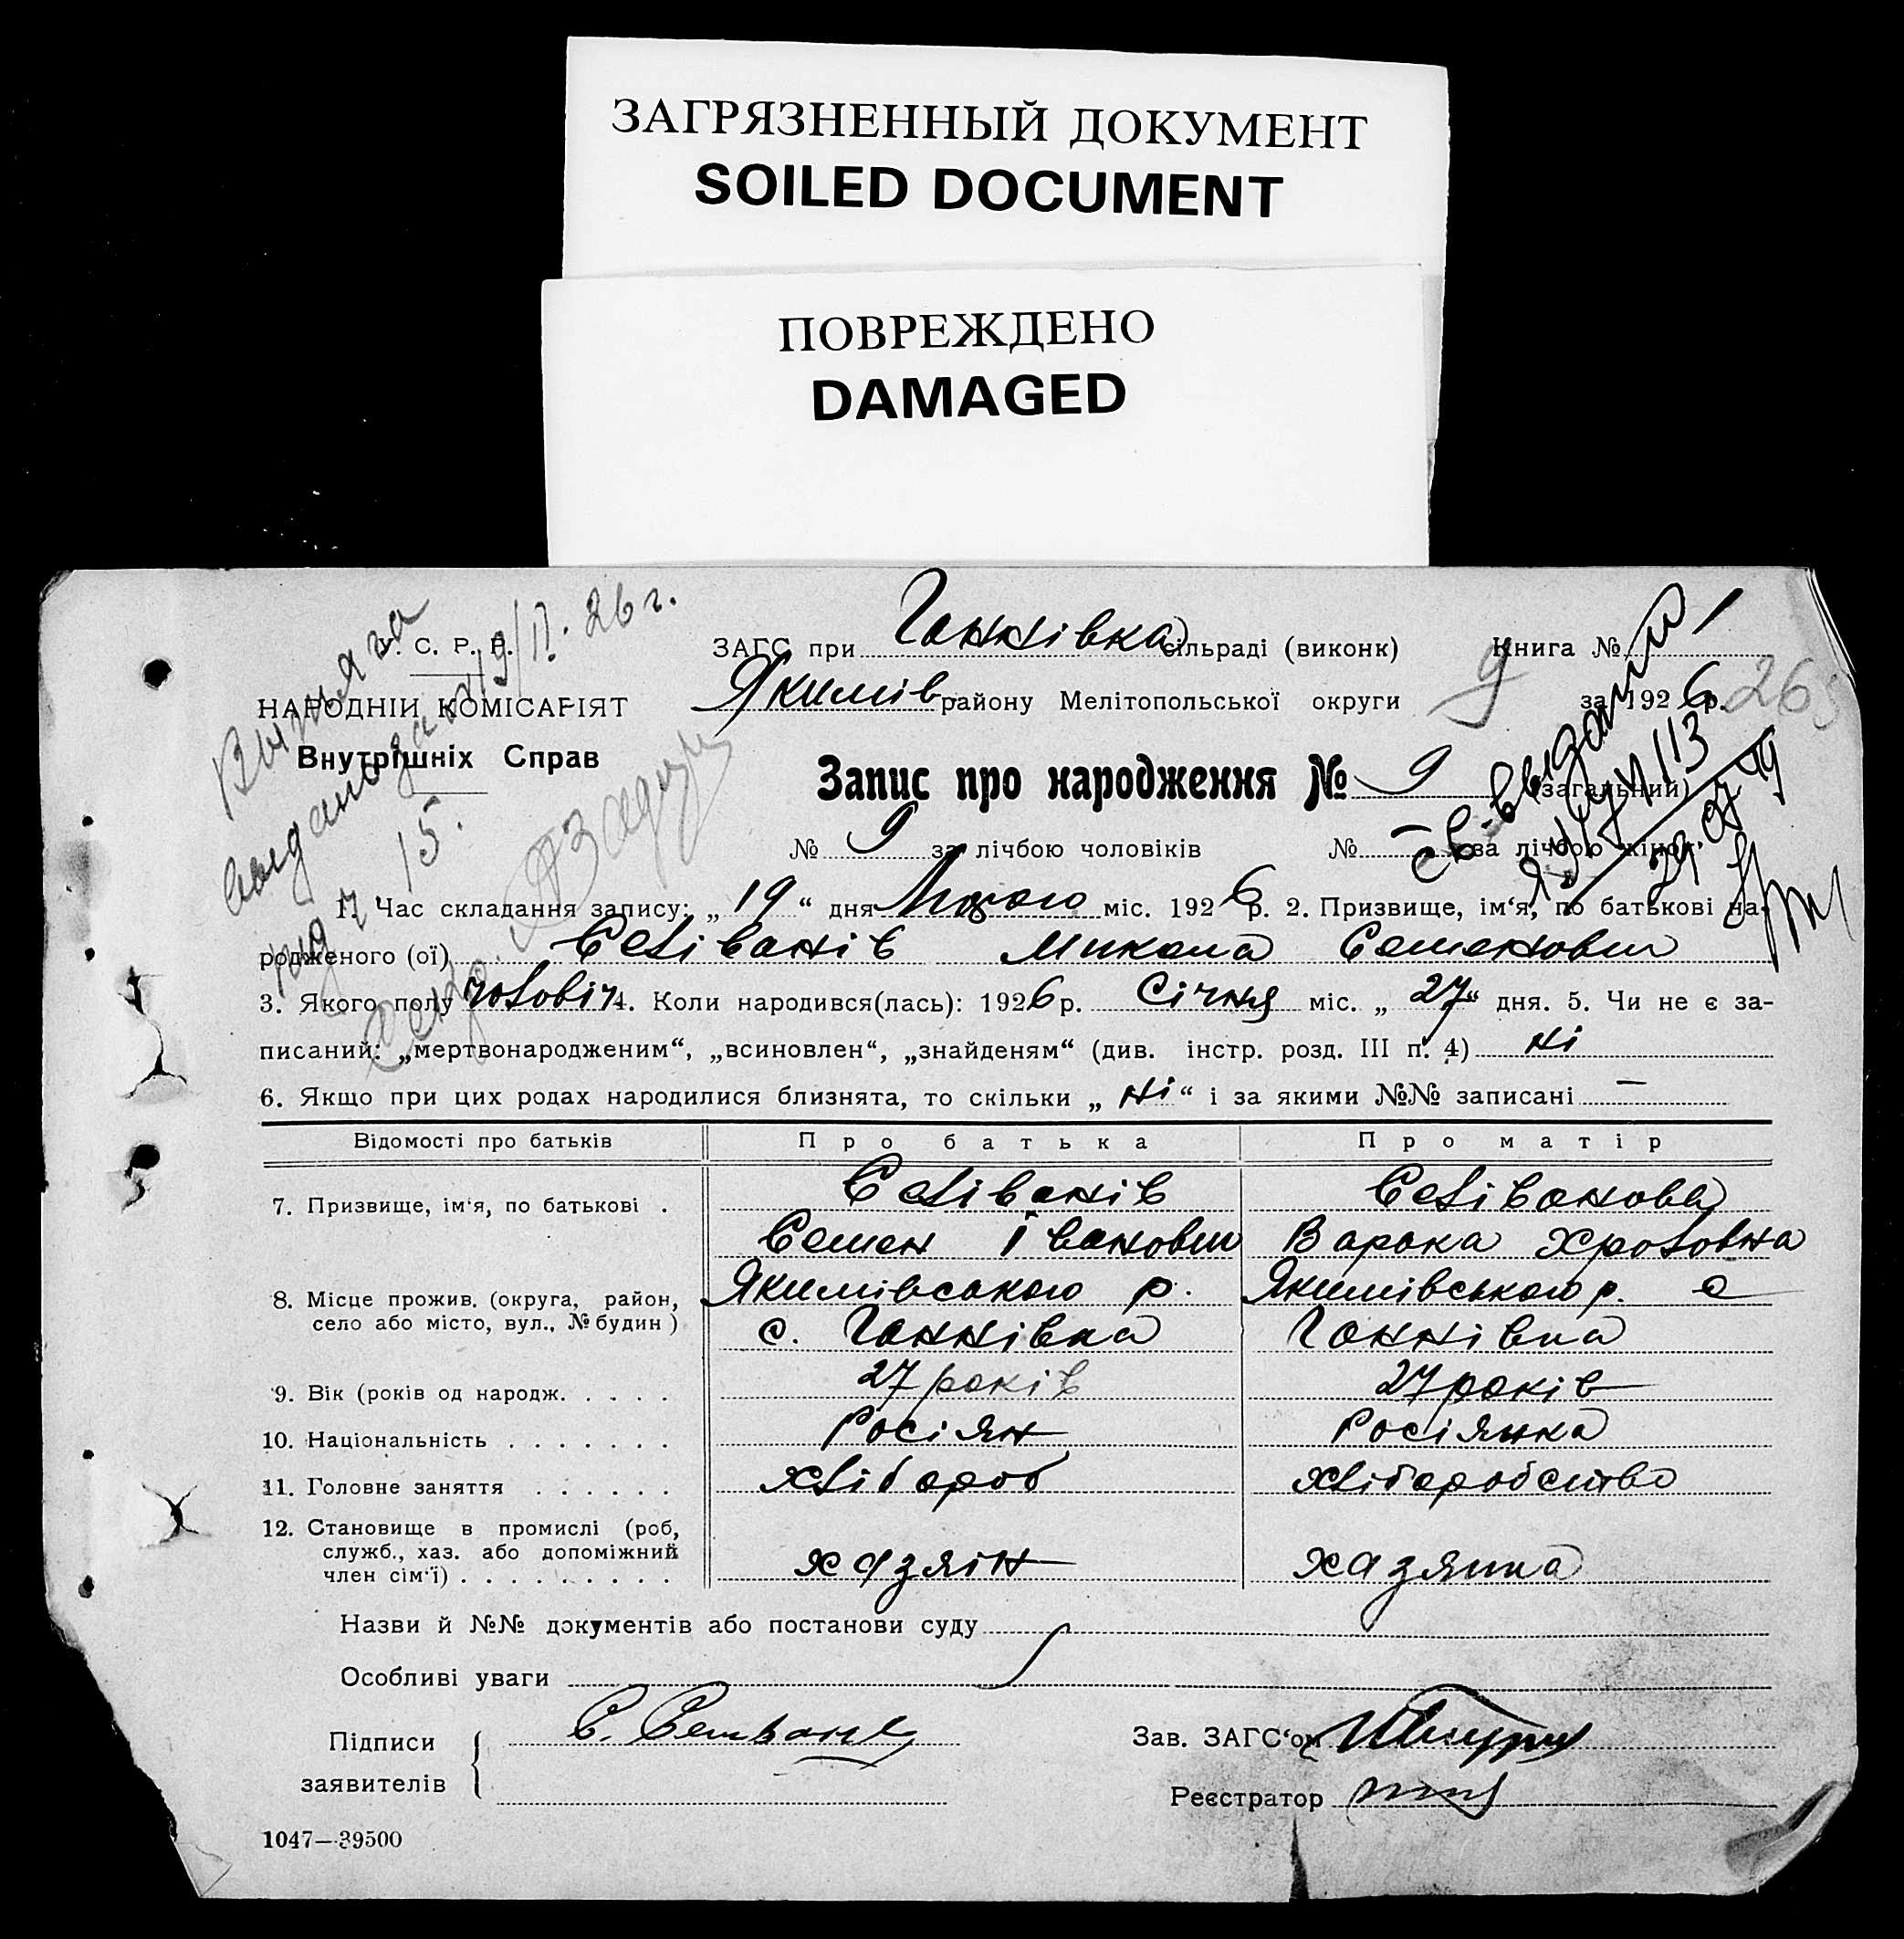 ЗАГРЯЗНЕННЫЙ ДОКУМЕНТ
SOILED DOCUMENT
ПОВРЕЖДЕНО
DAMAGED
У. С. Р. Р.
19/II. 26 г.
ЗАГС при Ганнівка сільраді (виконк) Книга №
НАРОДНІЙ КОМІСАРІЯТ
Якимів району Мелітопольської округи 9 за 1926 р. 26
Внутрішніх Справ
Запис про народження № 9 (загальний)
№ 9 за лічбою чоловіків № — за лічбою жінок.
15.
1. Час складання запису: „19“ дня Лютого міс. 1926 р. 2. Призвище, ім‘я, по батькові на-
родженого (ої) Селіванів Микола Семенович
3. Якого полу чоловіч 4. Коли народився(лась): 1926 р. Січня міс. „27“ дня. 5. Чи не є за-
писаний: „мертвонародженим“, „всиновлен“, „знайденям“ (див. інстр. розд. III п. 4) ні
6. Якщо при цих родах народилися близнята, то скільки „ні“ і за якими №№ записані —
Відомості про батьків Про батька Про матір
7. Призвище, ім‘я, по батькові . Селіванів Селіванова
Семен Іванович Варака Хроловна
8. Місце прожив. (округа, район, Якимівського р. Якимівського р. с
село або місто, вул., № будин ) с. Ганнівка Ганнівка
9. Вік (років од народж. . . . . 27 років 27 років
10. Національність . . . . . . . Росіян Росіянка
11. Головне заняття . . . . . . хлібороб хліборобство
12. Становище в промислі (роб,
служб., хаз. або допоміжний
член сім‘ї) . . . . . . . . . хазяін хазяика
Назви й №№ документів або постанови суду
Особливі уваги
Підписи
заявителів
С. Селиванов
Зав. ЗАГС‘ом
Реєстратор
1047—39500